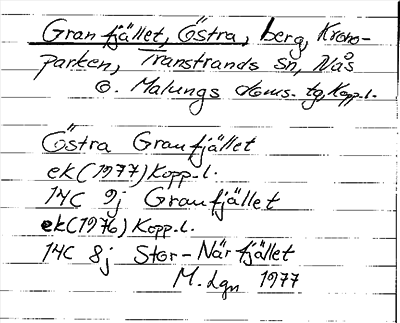 Granfjället, Östra, berg, Krono-
parken, Transtrands sn, Nås
o. Malungs doms. tg, Kopp.l.
Östra Granfjället
ek (1977) Kopp.l.
14C 9j Granfjället
ek (1976) Kopp.l.
14C 8j Stor-Närfjället
M. Lgn 1977